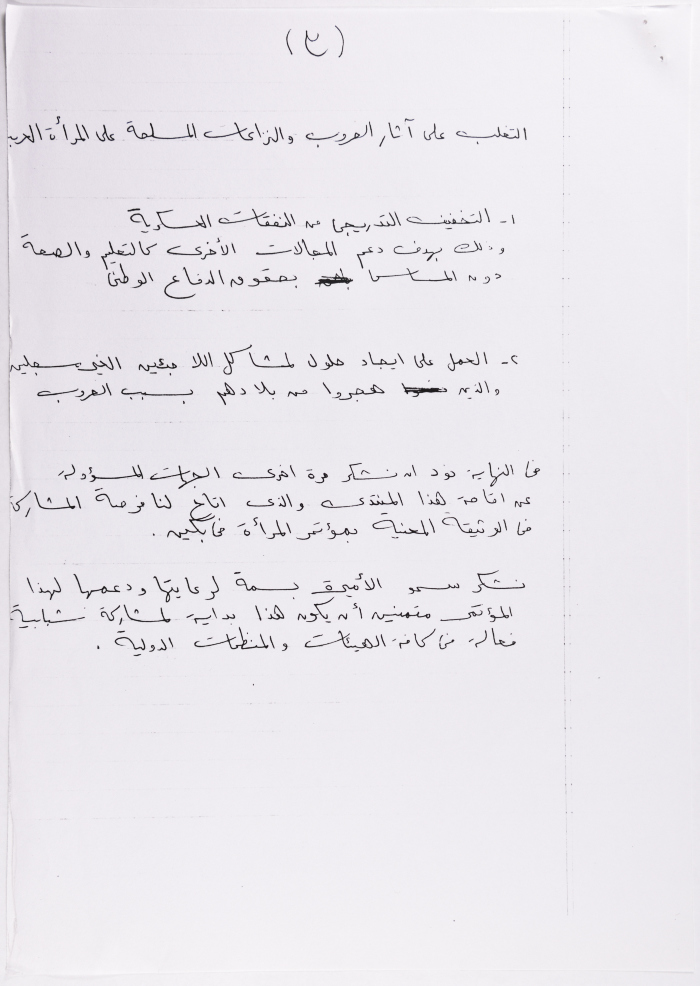 (٣)
التغلب على آثار الحروب والنزاعات المسلحة على المرأة
١- التخفيف التدريجي من النفقات العسكرية
وذلك بهدف دعم المجالات الأخرى كالتعليم والصحة
دون المساس بحقوق الدفاع الوطني
٢- العمل على ايجاد حلول لمشاكل اللاجئين الغير مسجلين
والذين هجروا من بلادهم بسبب الحروب
في النهاية نود ان نشكر مرة اخرى الجهات المسؤولة
عن اقامة هذا المنتدى والذي اتاح لنا فرصة المشاركة
في الوثيقة المعنية بمؤتمر المرأة في بكين .
نشكر سمو الأميرة بسمة لرعايتها ودعمها لهذا
المؤتمر متمنين أن يكون هذا بداية لمشاركة شبابية
فعالة من كافة الهيئات والمنظمات الدولية .